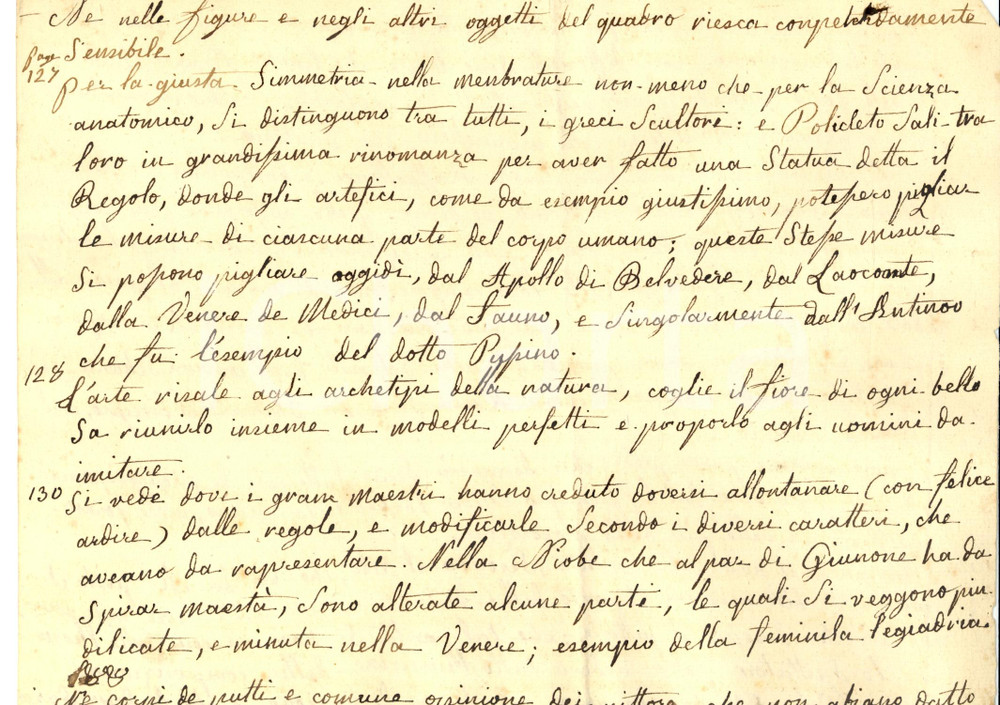 Ne nelle figure e negli altri oggetti del quadro riesca
Page Sensibile.
127 per la giusta Simmetria nella menbrature non meno che per la Scienza
anatomico, Si distinguono tra tutti, i greci Scultori: e Policleto Salì tra
loro in grandissima rinomanza per aver fatto una Statua detta il
Regolo, donde gli artefici, come da esempio giustissimo, potessero pigliar
le misure di ciascuna parte del corpo umano; queste Stesse misure
Si possono pigliare oggidì, dal Apollo di Belvedere, dal Laoconte,
dalla Venere de Medici, dal Fauno, e Singolarmente dall'Antinoo
che fu l'esempio del dotto Pussino.
128 L'arte risale agli archetipi della natura, coglie il fiore di ogni bello
Sa riunirlo insieme in modelli perfetti e proporlo agli uomini da
imitare.
130 Si vede dove i gram maestri hanno creduto doversi allontanare (con felice
ardire) dalle regole, e modificarle Secondo i diversi caratteri, che
aveano da rapresentare. Nella Niobe che al par di Giunone ha da
Spirar maestà, Sono alterate alcune parti, le quali Si veggono piu
dilicate, e minuta nella Venere; esempio della feminila legiadria.
Ne corpi de putti e comune opinione dei che non abiano dato